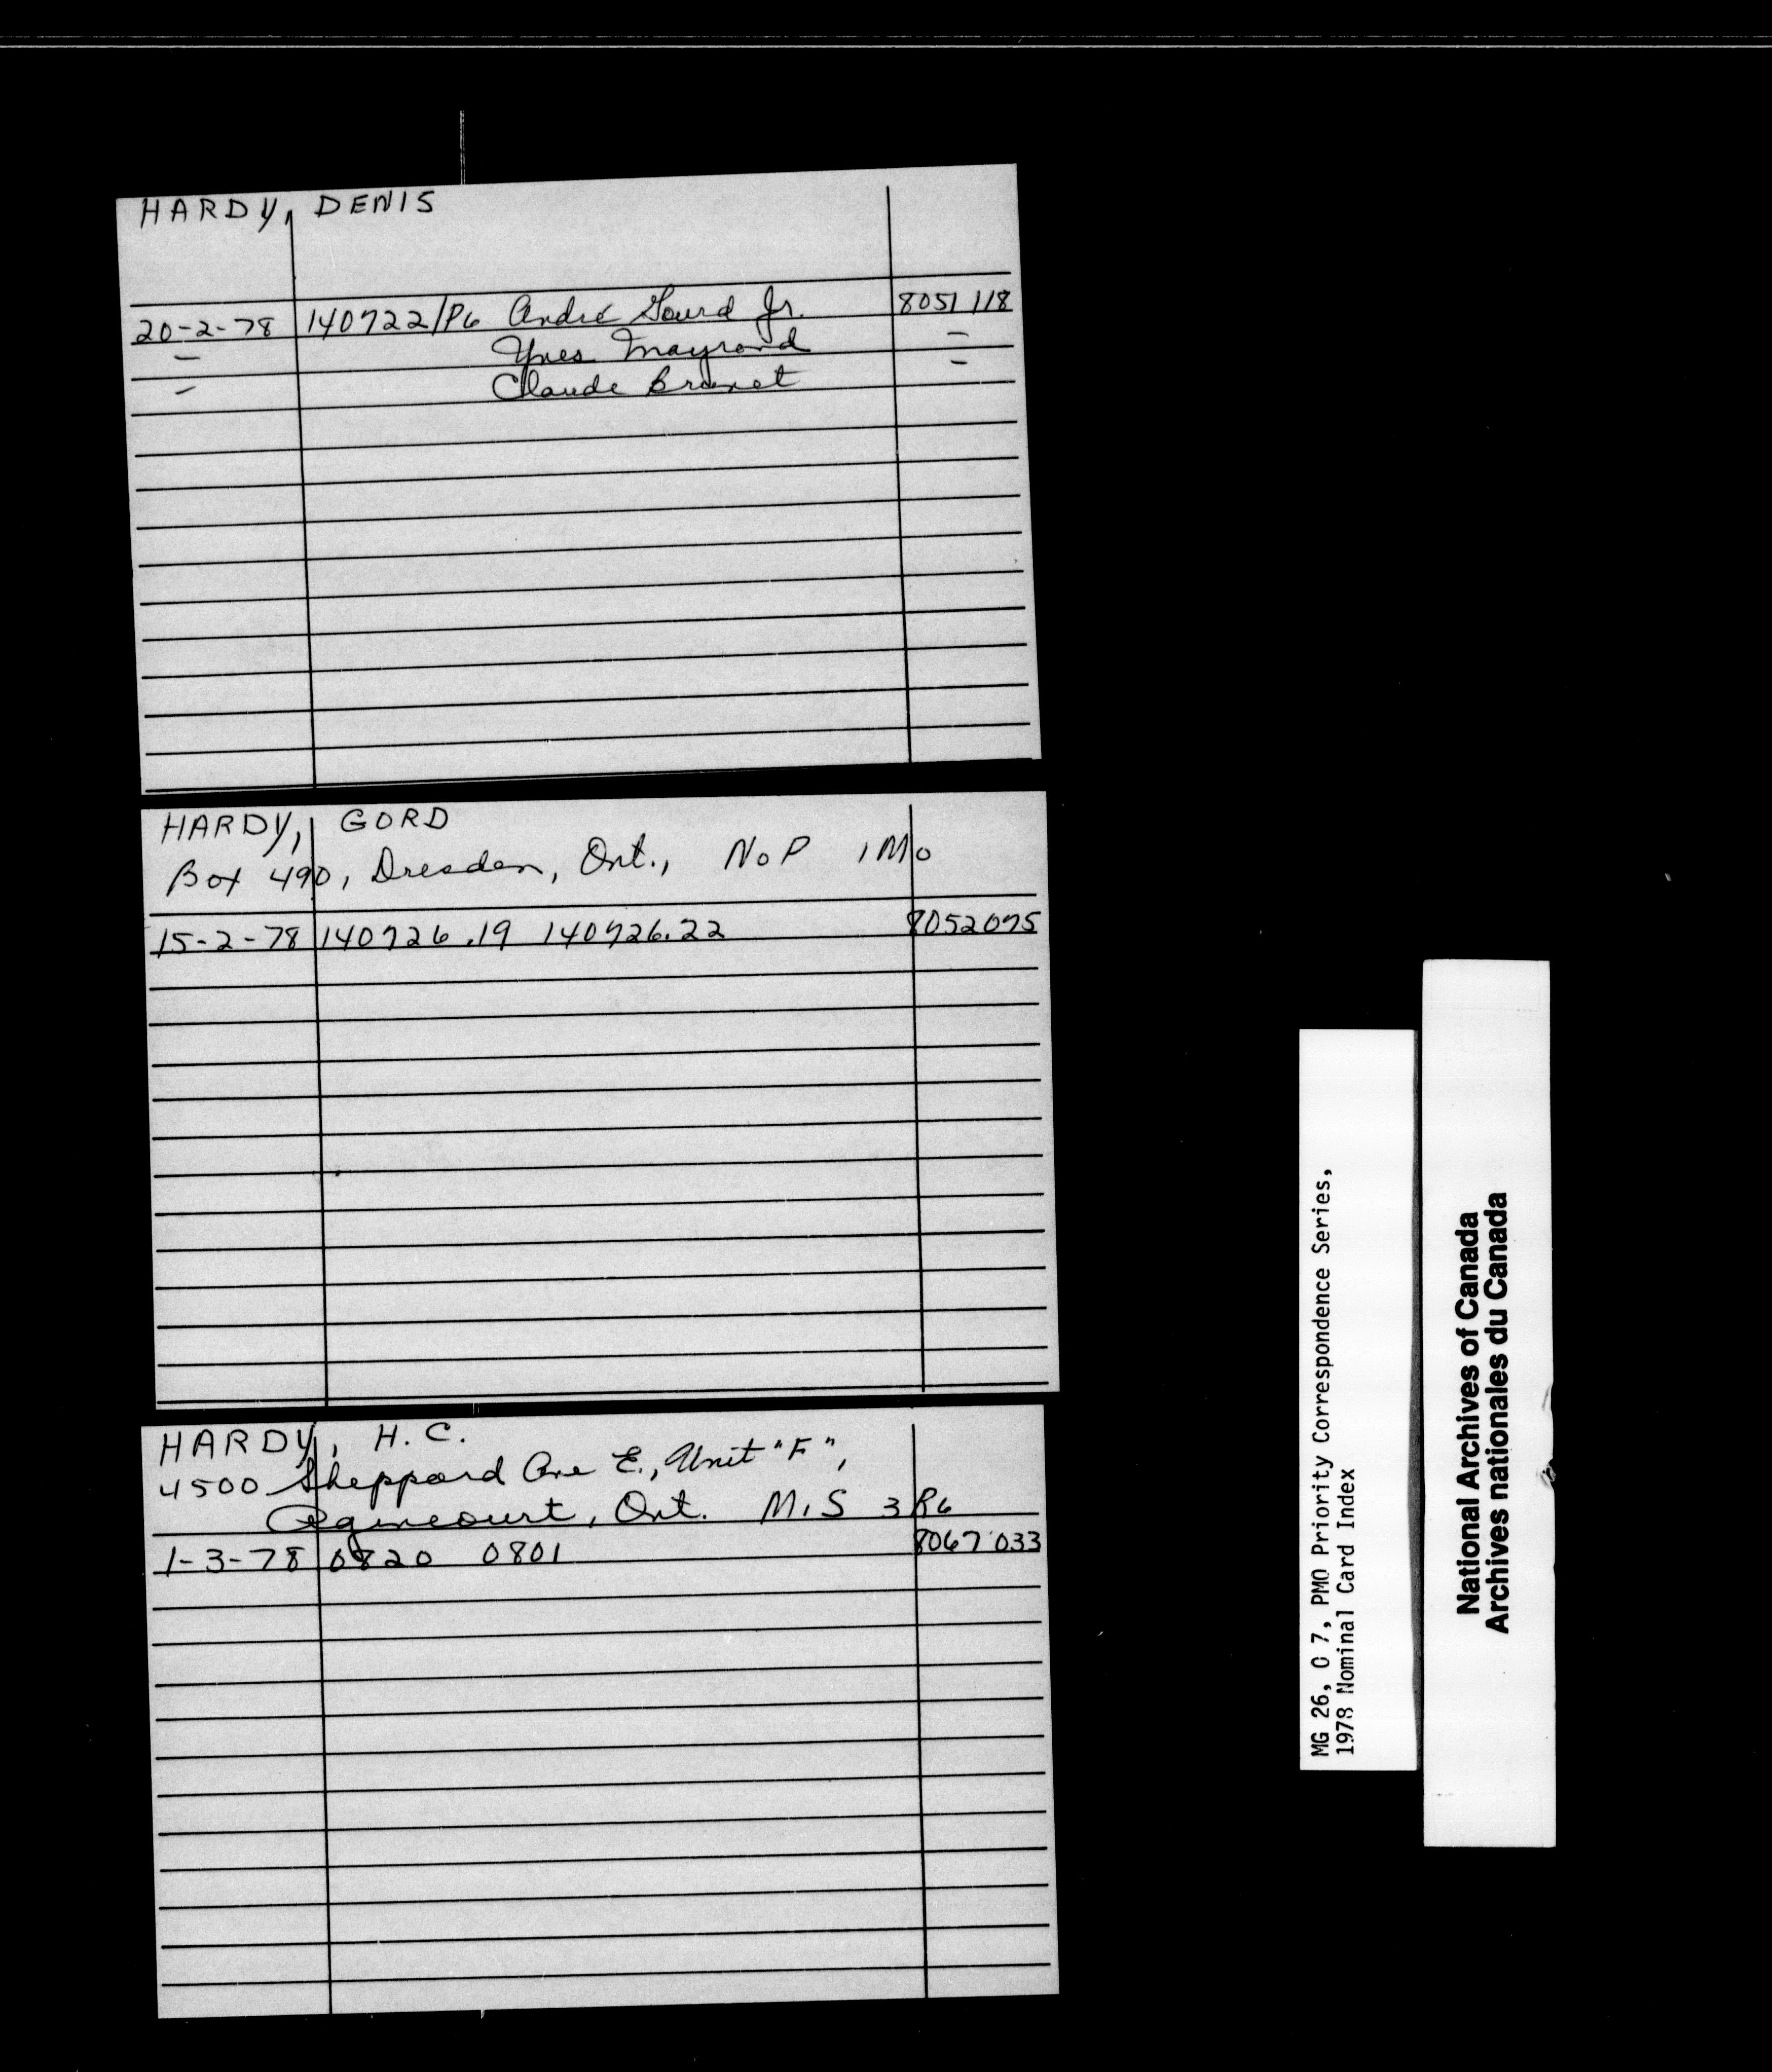 HARDY, DENIS
20-2-78 140722/P6 André Gourd Jr. 8051 118
— Yves Mayrand —
— Claude Brunet —
HARDY, GORD
Box 490, Dresden, Ont., NoP 1Mo
15-2-78 140726.19 140726.22 8052075
HARDY, H.C.
4500 Sheppard Ave E., Unit "F",
Agincourt, Ont. M1S 3R6
1-3-78 0820 0801 8067 033
MG 26, O 7, PMO Priority Correspondence Series,
1978 Nominal Card Index
National Archives of Canada
Archives nationales du Canada